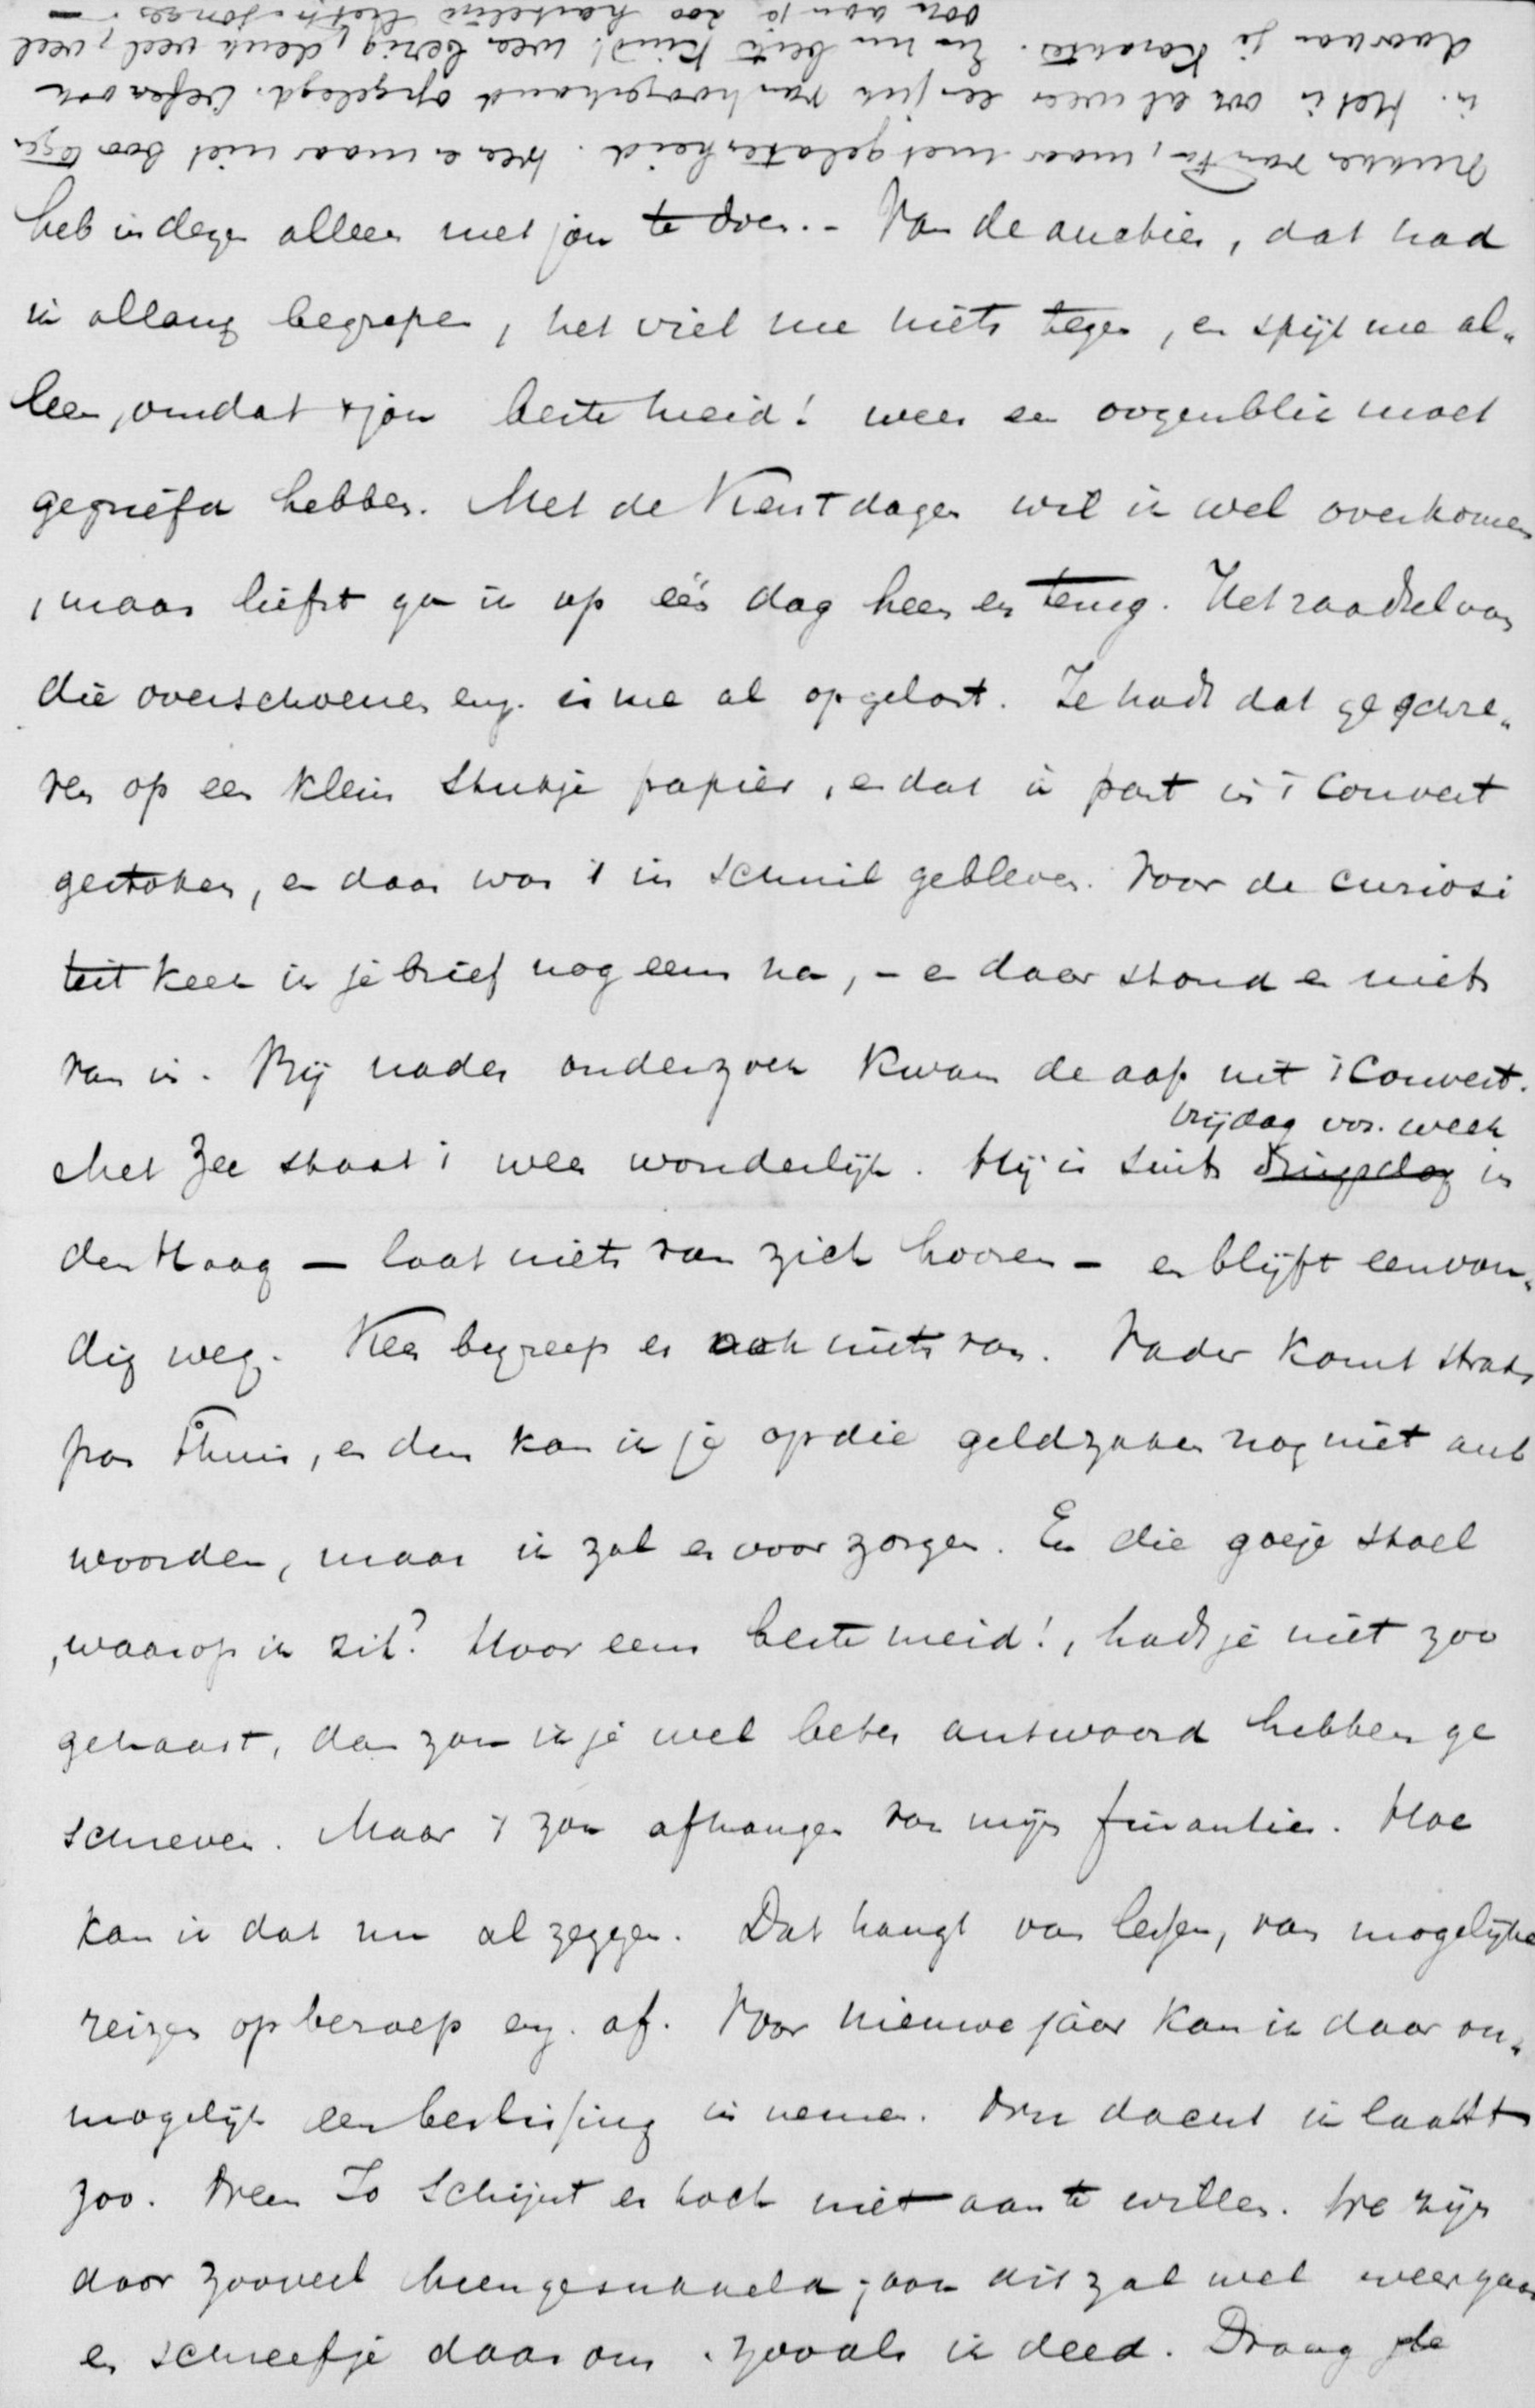 heb in dezen alleen met jou te doen. - Van de auctie, dat had
ik allang begrepen, het viel me niets tegen, en spijt me al„
leen, omdat 't jou beste meid! weer een oogenblik moet
gegriefd hebben. Met de Kerstdagen wil ik wel overkomen
, maar liefst ga ik op één dag heen en terug. Het raadsel van
die overschoenen enz. is me al opgelost. Je hadt dat geschre„
ven op een klein stukje papier, en dat à part in 't couvert
gestoken, en daar was 't in schuil gebleven. Voor de curiosi
teit keek ik je brief nog eens na, - en daar stond er niets
van in. Bij nader onderzoek kwam de aap uit 't couvert.
vrijdag vor. week
Met Zee staat 't weer wonderlijk. Hij is sints dingsdag in
den Haag — laat niets van zich hooren - en blijft eenvou„
dig weg. Kee begreep er ook niets van. Vader komt straks
pas thuis, en dus kan ik je op die geldzaken nog niet ant
woorden, maar ik zal er voor zorgen. En die goeje stoel
, waarop ik zit? Hoor eens beste meid!, hadt je niet zoo
gehaast, dan zou ik je wel beter antwoord hebben ge
schreven. Maar 't zou afhangen van mijn finantien. Hoe
kan ik dat nu al zeggen. Dat hangt van lessen, van mogelijke
reizen op beroep enz. af. Voor nieuwejaar kan ik daar on„
mogelijk een beslissing in nemen. Dus dacht ik laat 't
zoo. Meen Jo schijnt er toch niet aan te willen. We zijn
door zooveel heengesukkeld, ook dit zal wel weer gaan
en schreef je daarom, zooals ik deed. Draag de
nukken van Pa, maar met gelatenheid. Wees er maar niet boos tegen
in. Het is ook al weer een juk van hoogerhand opgelegd. Oefen ook
daaraan je karakter. En nu beste Kind! wees bezig, denk veel, veel
ook aan je zoo hartelijk liefh. jongen —